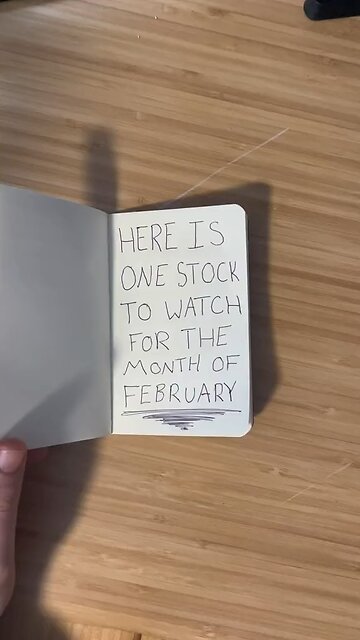 HERE IS
ONE STOCK
TO WATCH
FOR THE
MONTH OF
FEBRUARY